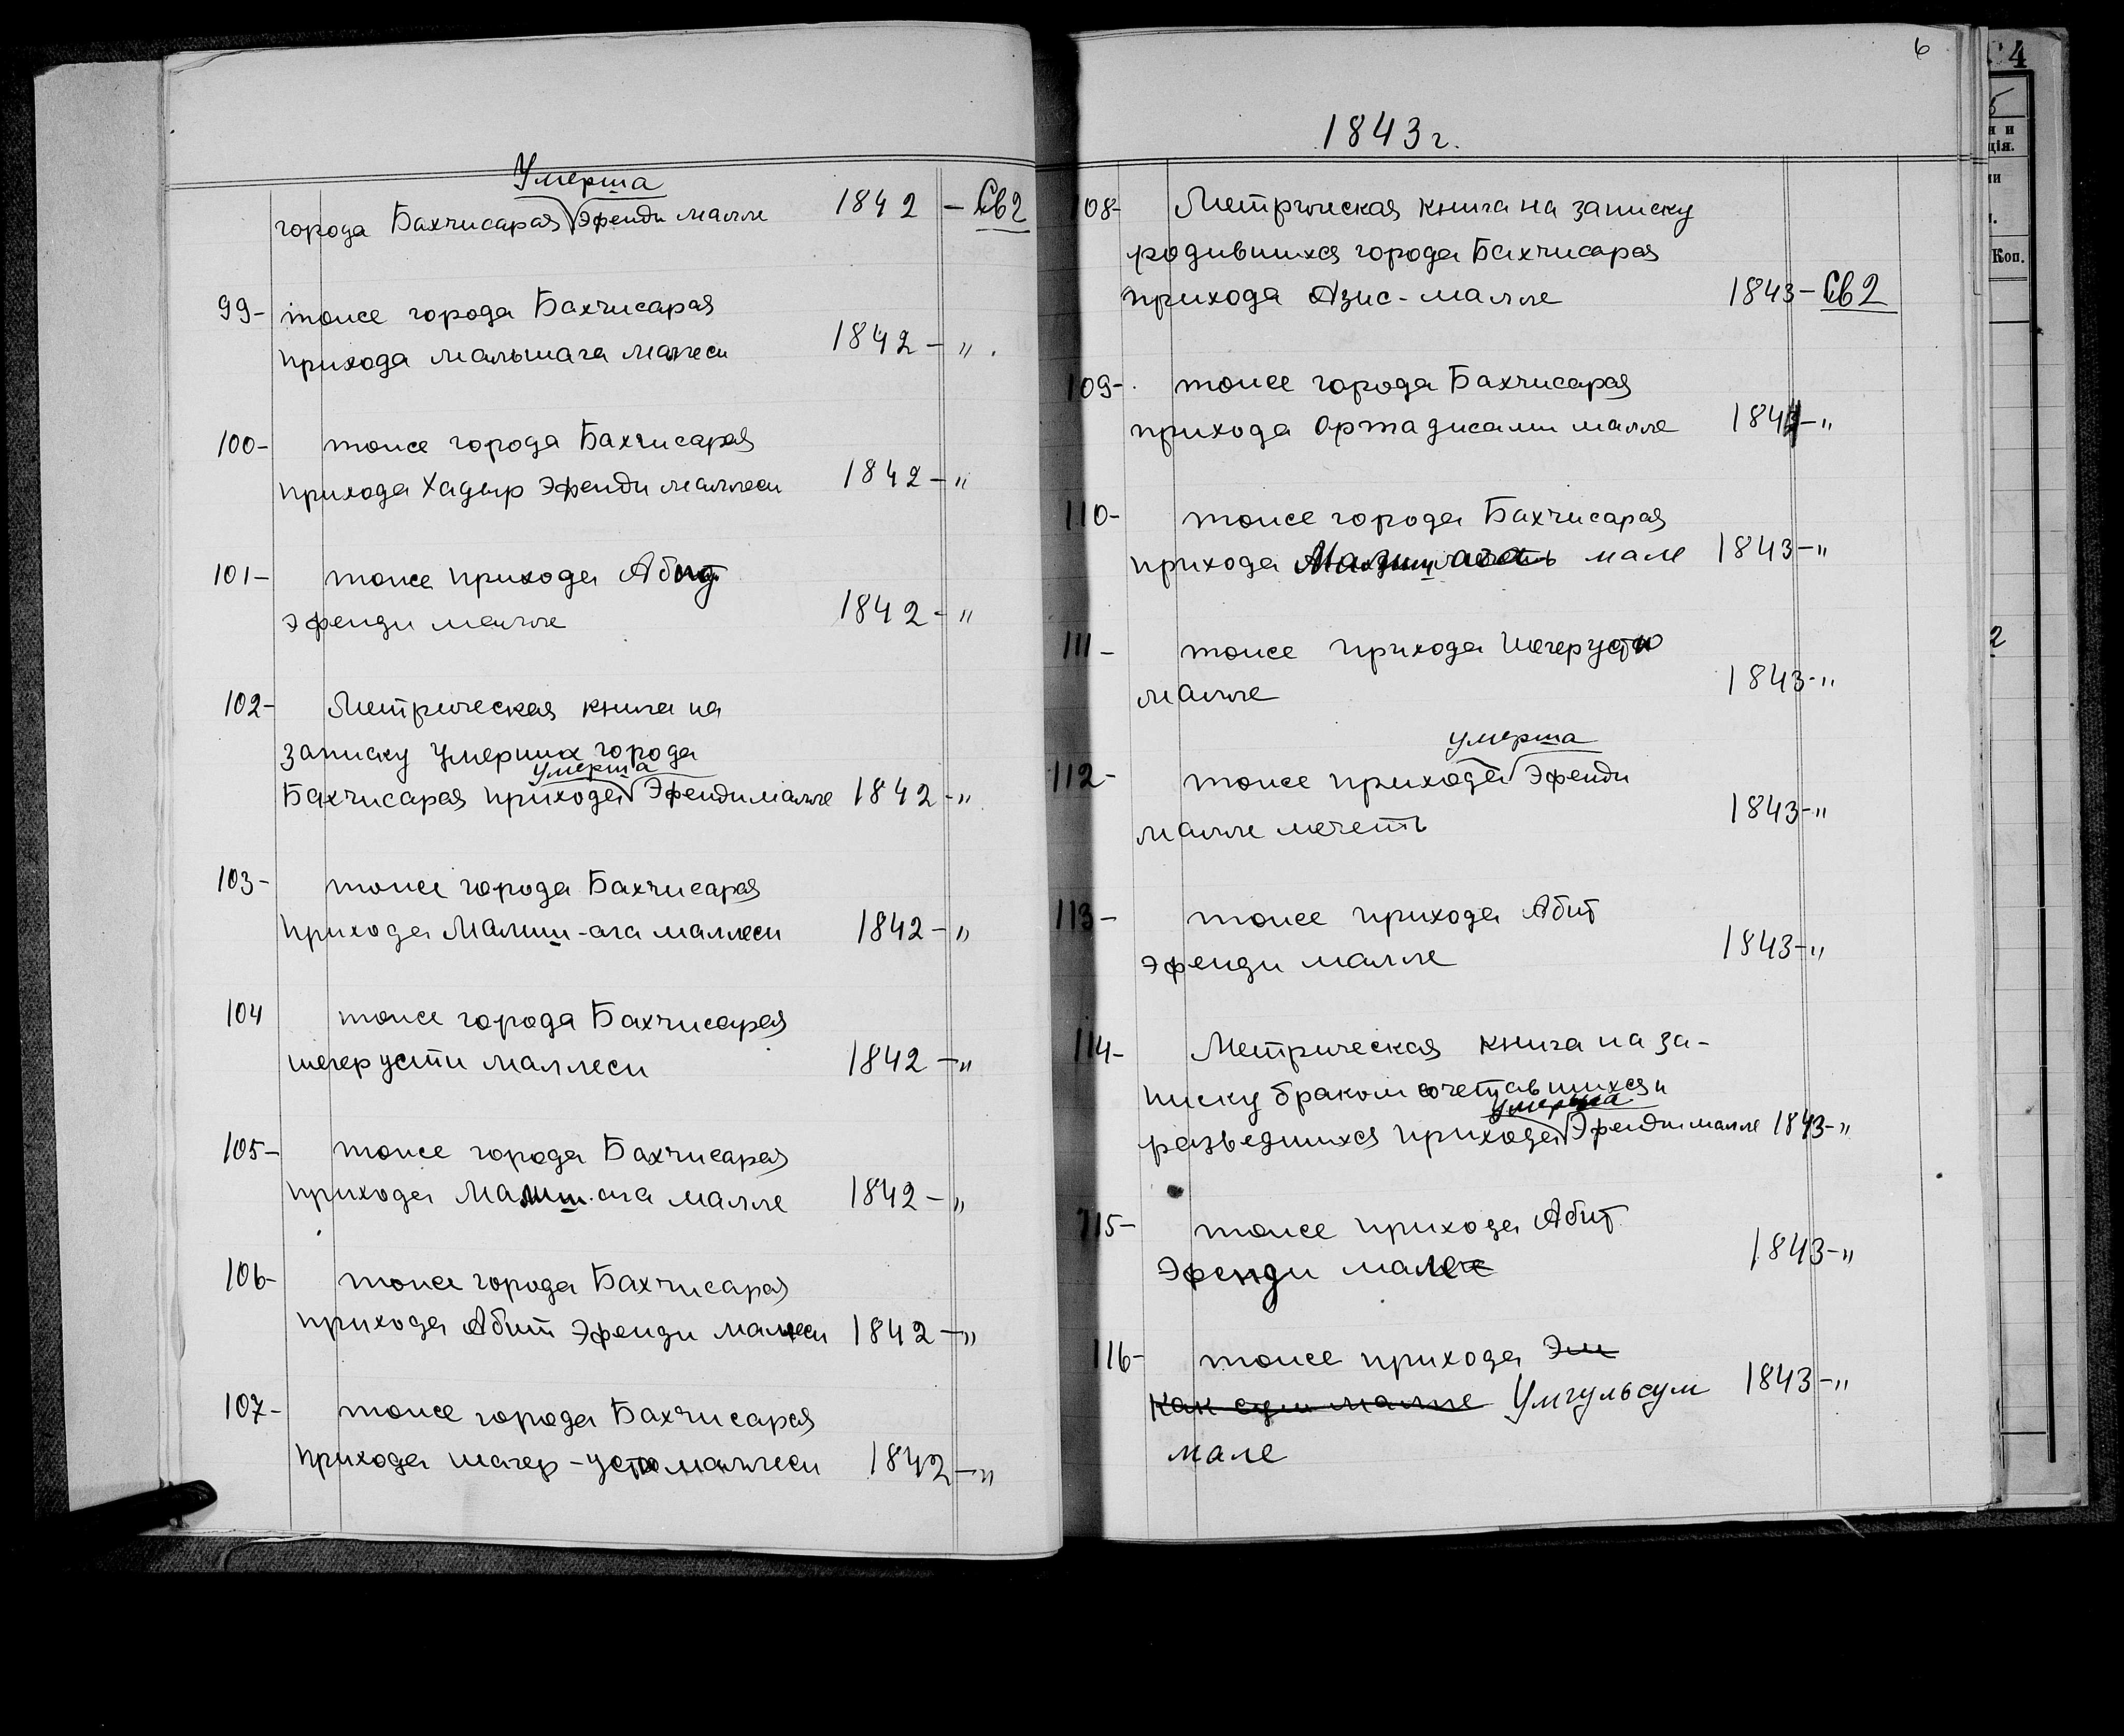 Умерша
города Бахчисарая Эфенди малле 1842 - Св2
99- тоже города Бахчисарая
прихода малышага маллеси 1842 - "
100- тоже города Бахчисарая
прихода Хадыр Эфенди маллеси 1842 - "
101- тоже прихода Абит
эфенди малле 1842 - "
102- Метрическая книга на
записку умерших города
умерша
Бахчисарая прихода Эфенди малле 1842 - "
103- тоже города Бахчисарая
прихода Малиш-ага маллеси 1842 - "
104 тоже города Бахчисарая
шегер усти маллеси 1842 - "
105- тоже города Бахчисарая
прихода Малиш-ага малле 1842 - "
106- тоже города Бахчисарая
прихода Абит Эфенди маллеси 1842 - "
107- тоже города Бахчисарая
прихода шагер-усти маллеси 1842 - "
6
1843 г.
108- Метрическая книга на записку
родившихся города Бахчисарая
прихода Азис-малле 1843 - Св2
109- тоже города Бахчисарая
прихода Орта джами малле 1843 - "
110- тоже города Бахчисарая
прихода мале 1843 - "
111- тоже прихода Шегерусти
малле 1843 - "
умерша
112- тоже прихода Эфенди
малле мечеть 1843 - "
113- тоже прихода Абит
эфенди малле 1843 - "
114- Метрическая книга на за-
писку браком сочетавшихся и
умерша
разведшихся прихода Эфенди малле 1843 - "
115- тоже прихода Абит
Эфенди мале 1843 - "
116- тоже прихода Эм
как сум малле Умгульсум 1843 - "
мале
4
Коп.
2